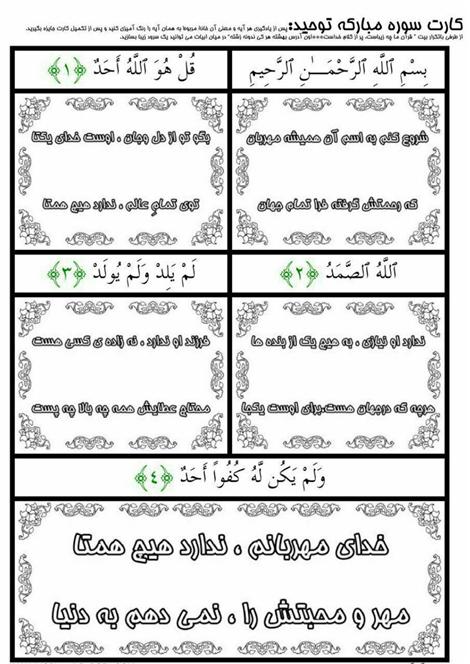 کارت سوره مبارکه توحید:
پس از یادگیری هر آیه و معنی آن خانهٔ مربوط به همان آیه را رنگ آمیزی کنید و پس از تکمیل کارت جایزه بگیرید.
از طرفی باتکرار بیت " قرآن ما چه زیباست، پر از کلام خداست***اون آدرس بهشته هر کی ندونه زشته" در میان ابیات می توانید یک سرود زیبا بسازید.
بِسْمِ اللَّهِ الرَّحْمَـٰنِ الرَّحِيمِ
شروع کنم به اسم آن همیشه مهربان
که رحمتش گرفته فرا تمام جهان
قُلْ هُوَ اللَّهُ أَحَدٌ ﴿١﴾
بگو تو از دل وجان ، اوست خدای یکتا
توی تمام عالم ، ندارد هیچ همتا
اللَّهُ الصَّمَدُ ﴿٢﴾
ندارد او نیازی ، به هیچ یک از بنده ها
هرچه که درجهان هست،برای اوست یکجا
لَمْ يَلِدْ وَلَمْ يُولَدْ ﴿٣﴾
فرزند او ندارد ، نه زاده ی کسی هست
محتاج عطایش همه چه بالا چه پست
وَلَمْ يَكُن لَّهُ كُفُواً أَحَدٌ ﴿٤﴾
خدای مهربانم ، ندارد هیچ همتا
مهر و محبتش را ، نمی دهم به دنیا